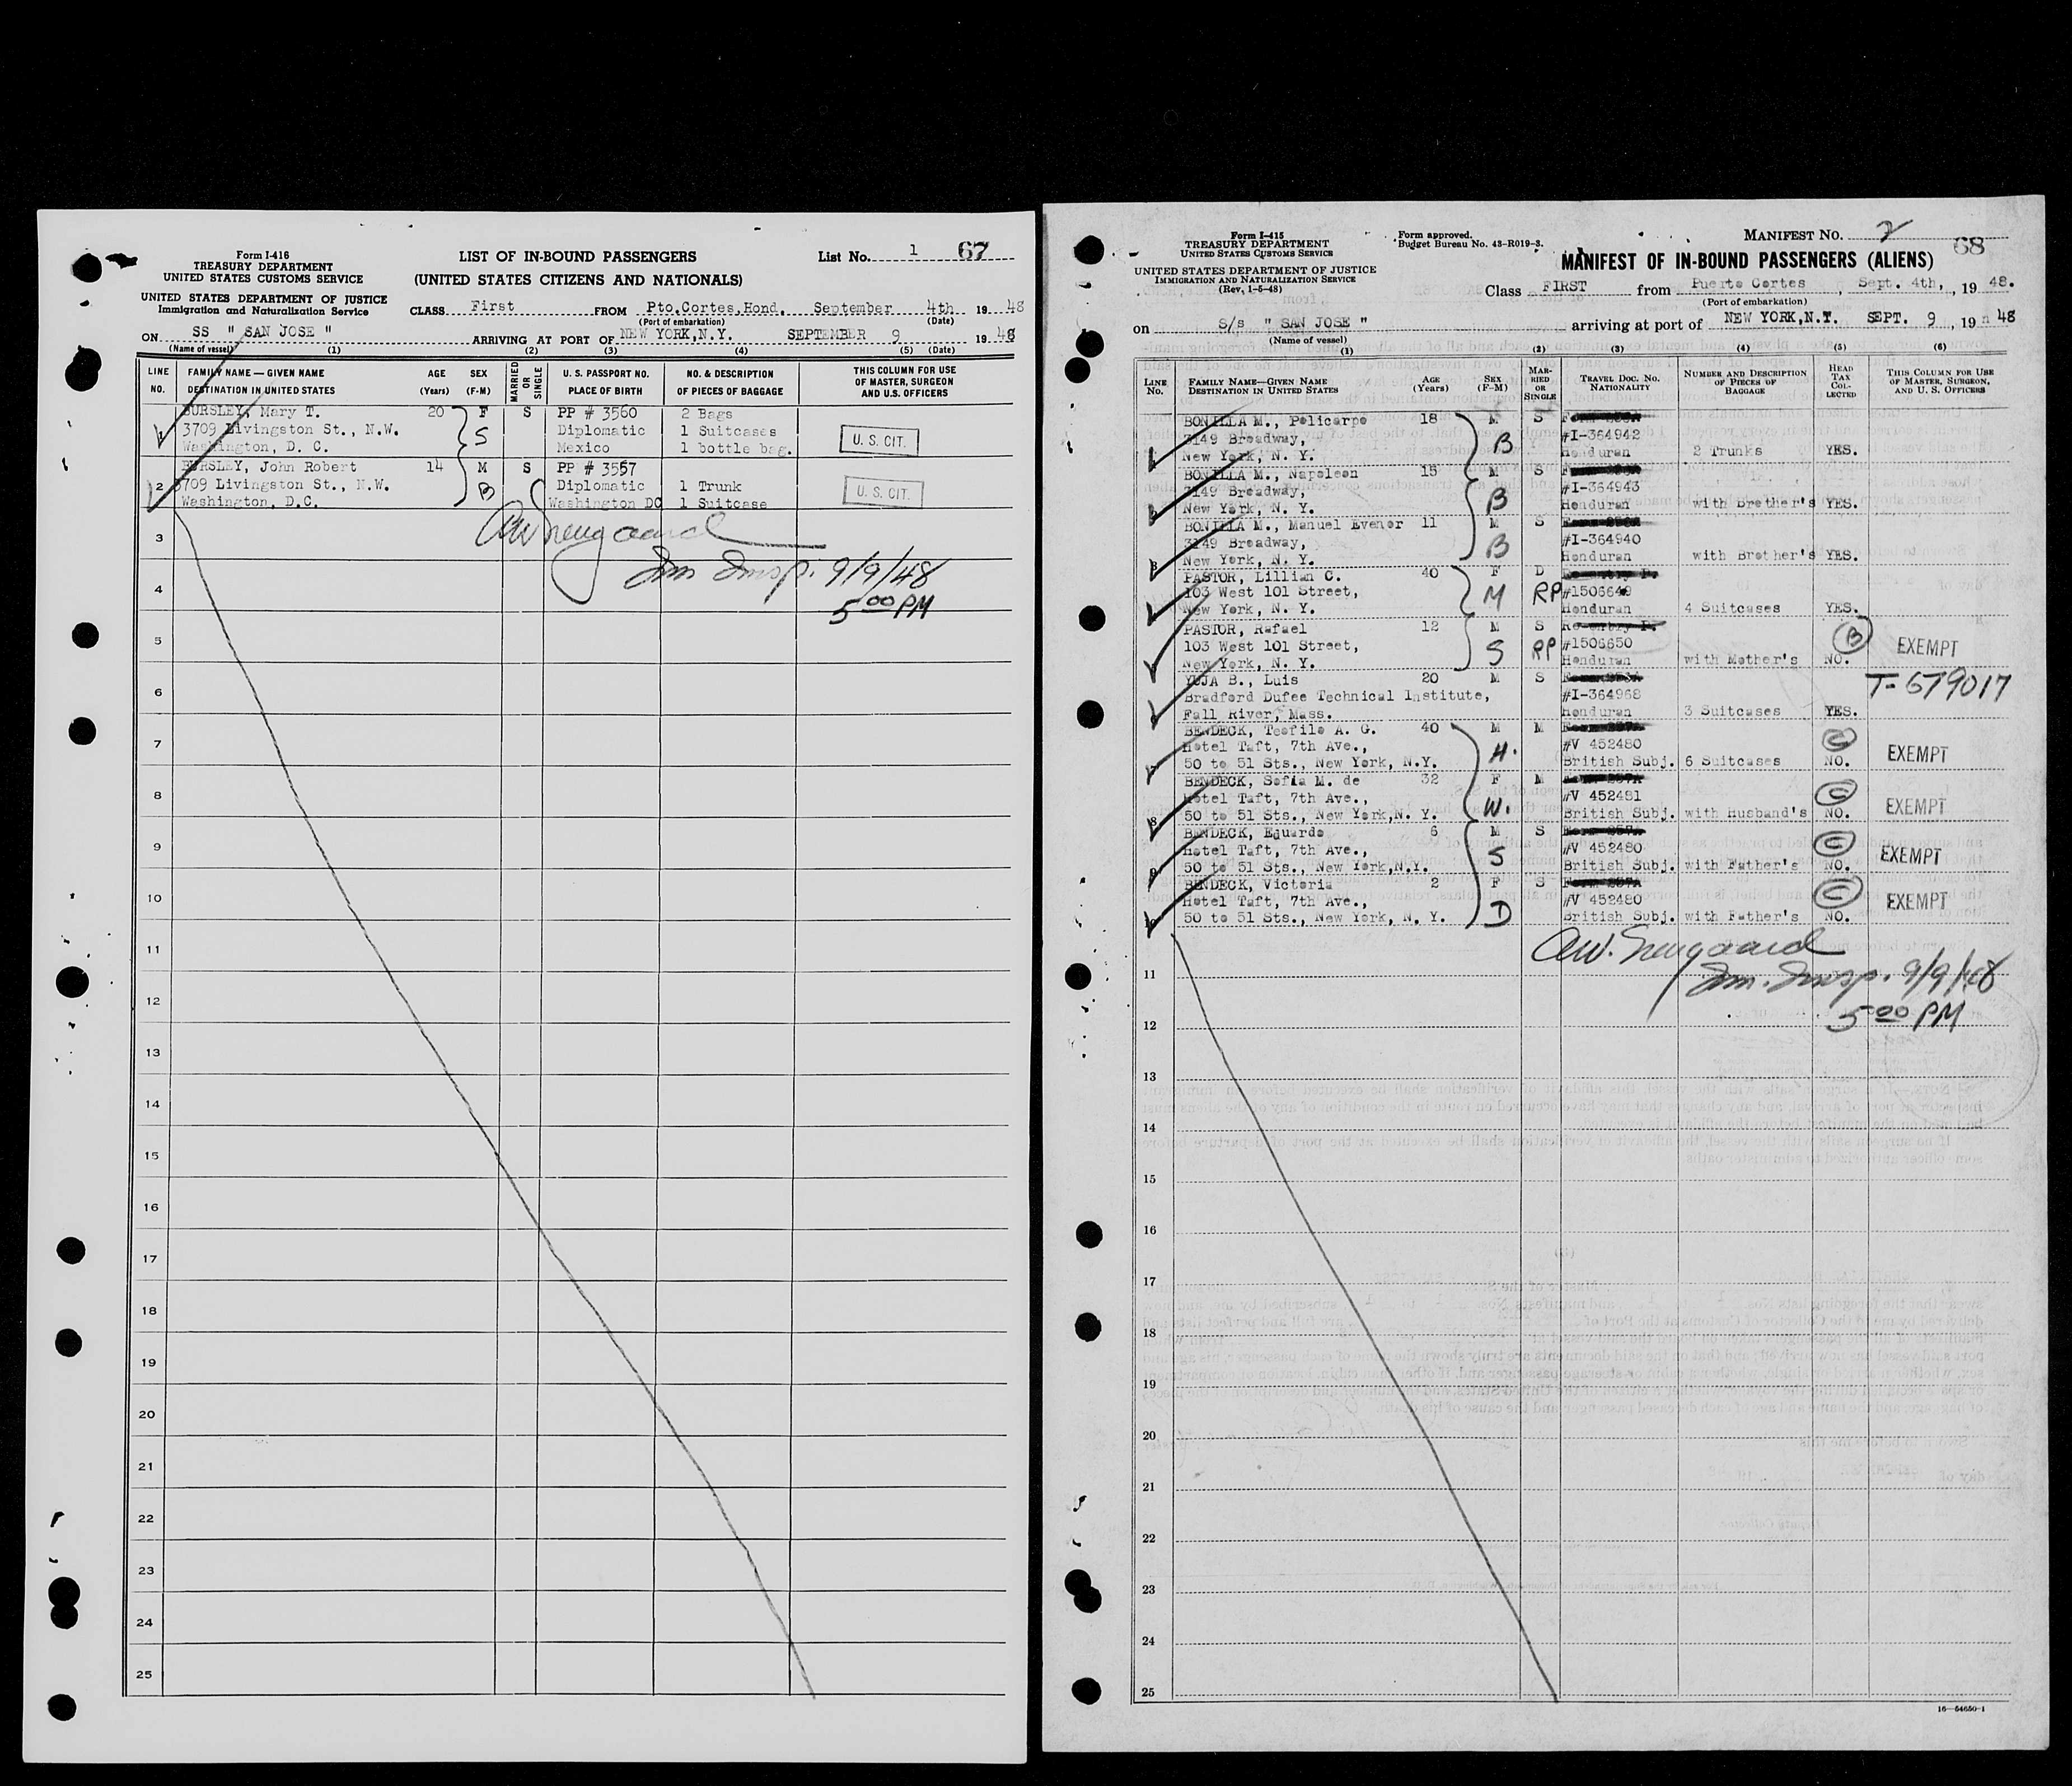 Form I-416
TREASURY DEPARTMENT
UNITED STATES CUSTOMS SERVICE
UNITED STATES DEPARTMENT OF JUSTICE
Immigration and Naturalization Service
LIST OF IN-BOUND PASSENGERS
(UNITED STATES CITIZENS AND NATIONALS)
List No. 1 67
CLASS First FROM Pto.Cortes,Hond. September 4th 19 48
(Port of embarkation) (Date)
ON SS " SAN JOSE " ARRIVING AT PORT OF NEW YORK,N.Y. SEPTEMBER 9 19 48
(Name of vessel) (1) (2) (3) (4) (5) (Date)
LINE NO. FAMILY NAME — GIVEN NAME DESTINATION IN UNITED STATES AGE (Years) SEX (F-M) MARRIED OR SINGLE U. S. PASSPORT NO. PLACE OF BIRTH NO. & DESCRIPTION OF PIECES OF BAGGAGE THIS COLUMN FOR USE OF MASTER, SURGEON AND U.S. OFFICERS
BURSLEY, Mary T. 20 F S PP # 3560 2 Bags
1 3709 Livingston St., N.W. S Diplomatic 1 Suitcases U. S. CIT.
Washington, D. C. Mexico 1 bottle bag.
BURSLEY, John Robert 14 M S PP # 3557
2 3709 Livingston St., N.W. B Diplomatic 1 Trunk U. S. CIT.
Washington, D.C. Washington DC 1 Suitcase
3
Imm Insp. 9/9/48
4
5 00 PM
5
6
7
8
9
10
11
12
13
14
15
16
17
18
19
20
21
22
23
24
25
Form I-415
TREASURY DEPARTMENT
UNITED STATES CUSTOMS SERVICE
UNITED STATES DEPARTMENT OF JUSTICE
IMMIGRATION AND NATURALIZATION SERVICE
(Rev. 1-5-48)
Form approved.
Budget Bureau No. 43-R019-3.
MANIFEST NO. 2 68
MANIFEST OF IN-BOUND PASSENGERS (ALIENS)
Class FIRST from Puerto Cortes, Sept. 4th, 19 48.
(Port of embarkation)
on S/s " SAN JOSE " arriving at port of NEW YORK,N.Y. SEPT. 9, 19 48
(Name of vessel)
(1) (2) (3) (4) (5) (6)
LINE NO. FAMILY NAME—GIVEN NAME DESTINATION IN UNITED STATES AGE (Years) SEX (F-M) MARRIED OR SINGLE TRAVEL DOC. NO. NATIONALITY NUMBER AND DESCRIPTION OF PIECES OF BAGGAGE HEAD TAX COLLECTED THIS COLUMN FOR USE OF MASTER, SURGEON, AND U. S. OFFICERS
BONILLA M., Policarpo 18 M S
3149 Broadway, B #I-364942
1 New York, N. Y. Honduran 2 Trunks YES.
BONILLA M., Napoleon 15 M S
3149 Broadway, B #I-364943
2 New York, N. Y. Honduran with Brother's YES.
BONILLA M., Manuel Evenor 11 M S
3149 Broadway, B #I-364940
3 New York, N. Y. Honduran with Brother's YES.
PASTOR, Lillian C. 40 F D Re-entry P.
103 West 101 Street, M RP #1506649
New York, N. Y. Honduran 4 Suitcases YES.
PASTOR, Rafael 12 M S Re-entry P. B
103 West 101 Street, S RP #1506650 EXEMPT
New York, N. Y. Honduran with Mother's NO.
YUJA B., Luis 20 M S T-679017
Bradford Dufee Technical Institute, #I-364968
Fall River, Mass. Honduran 3 Suitcases YES.
BENDECK, Teofilo A. G. 40 M M C
Hotel Taft, 7th Ave., H. #V 452480 EXEMPT
7 50 to 51 Sts., New York, N.Y. British Subj. 6 Suitcases NO.
BENDECK, Sofia M. de 32 F M C
Hotel Taft, 7th Ave., W. #V 452481 EXEMPT
8 50 to 51 Sts., New York,N. Y. British Subj. with Husband's NO.
BENDECK, Eduardo 6 M S C
Hotel Taft, 7th Ave., S #V 452480 EXEMPT
9 50 to 51 Sts., New York,N.Y. British Subj. with Father's NO.
BENDECK, Victoria 2 F S C
Hotel Taft, 7th Ave., D #V 452480 EXEMPT
10 50 to 51 Sts., New York, N. Y. British Subj. with Father's NO.
11
Imm. Insp. 9/9/48
5 00 PM
12
13
14
15
16
17
18
19
20
21
22
23
24
25
16—54650-1